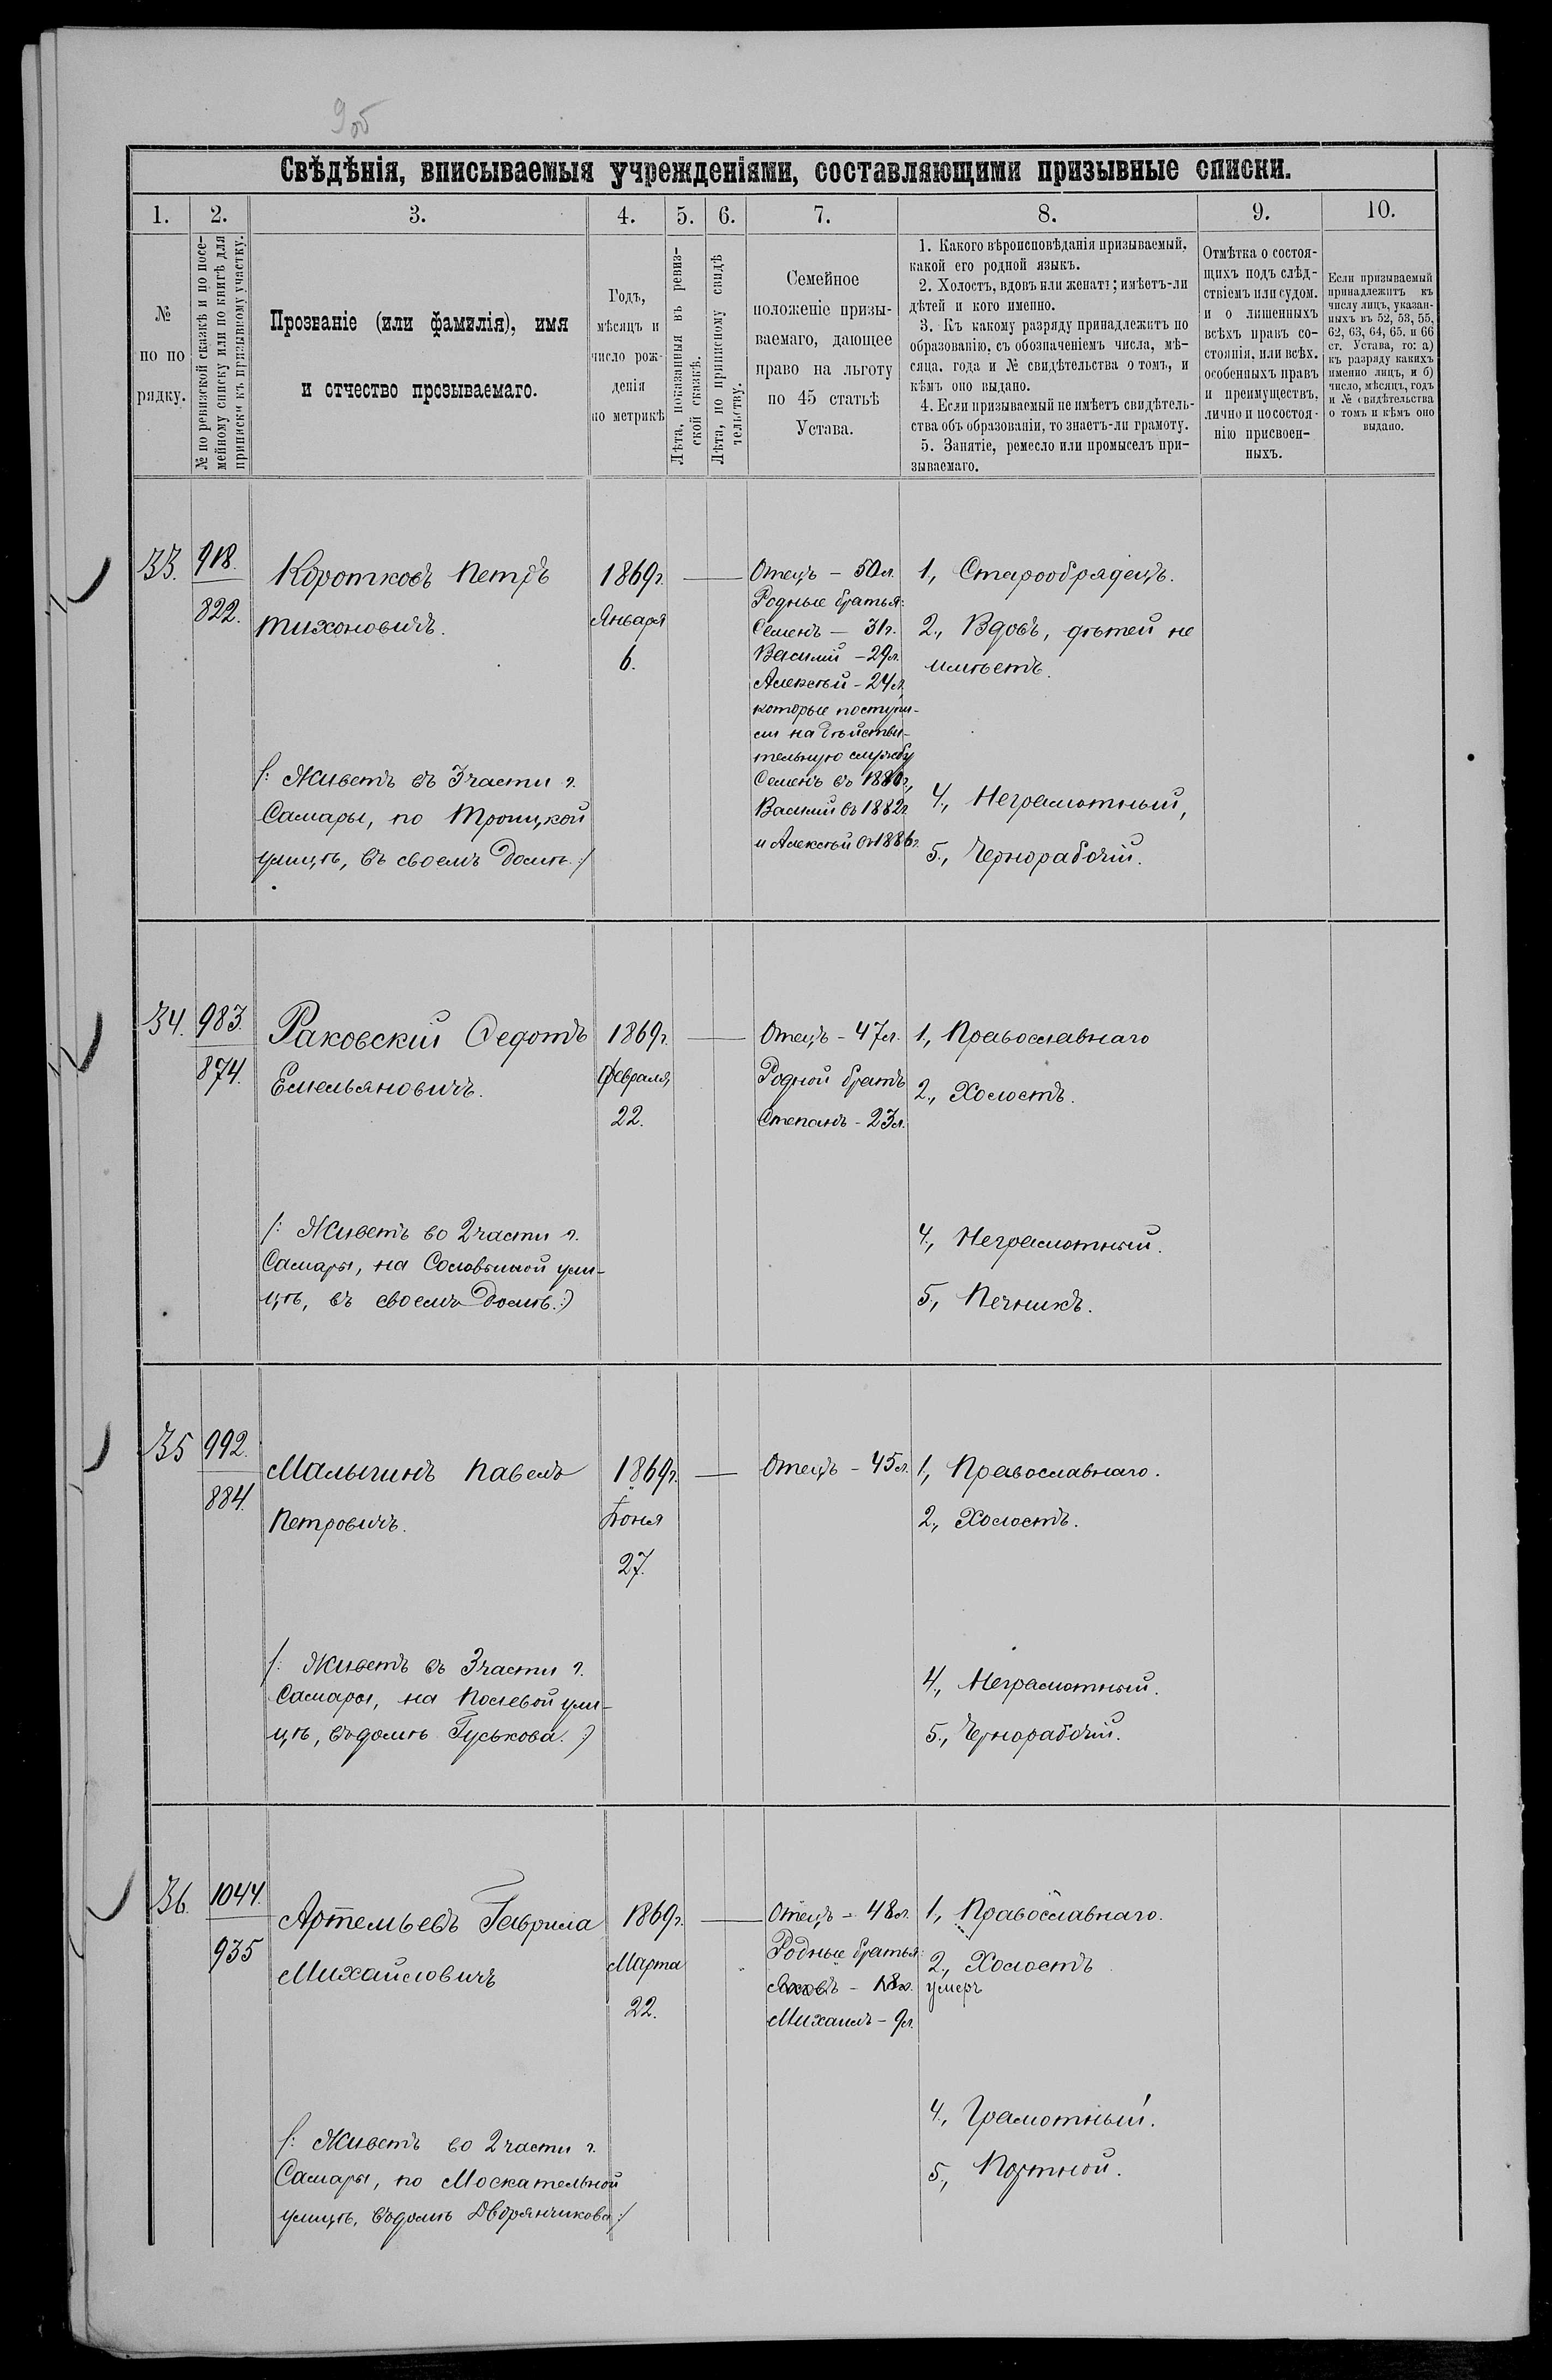 9об
Свѣдѣнія, вписываемыя учрежденіями, составляющими призывные списки.
1. 2. 3. 4. 5. 6. 7. 8. 9. 10.
№
по по
рядку.
№ по ревизской сказкѣ и по посе-
мейному списку или по книгѣ для
приписки къ призывному участку.
Прозваніе (или фамилія), имя
и отчество прозываемаго.
Годъ,
мѣсяцъ и
число рож-
денія
по метрикѣ
Лѣта, показанныя въ ревиз-
ской сказкѣ.
Лѣта, по приписному свидѣ
тельству.
Семейное
положеніе призы-
ваемаго, дающее
право на льготу
по 45 статьѣ
Устава.
1. Какого вѣроисповѣданія призываемый,
какой его родной языкъ.
2. Холостъ, вдовъ или женатъ; имѣетъ-ли
дѣтей и кого именно.
3. Къ какому разряду принадлежитъ по
образованію, съ обозначеніемъ числа, мѣ-
сяца, года и № свидѣтельства о томъ, и
кѣмъ оно выдано.
4. Если призываемый не имѣетъ свидѣтель-
ства объ образованіи, то знаетъ-ли грамоту.
5. Занятіе, ремесло или промыселъ при-
зываемаго.
Отмѣтка о состоя-
щихъ подъ слѣд-
ствіемъ или судом.
и о лишенныхъ
всѣхъ правъ со-
стоянія, или всѣх.
особенныхъ правъ
и преимуществъ,
лично и по состоя-
нію присвоен-
ныхъ.
Если призываемый
принадлежитъ къ
числу лицъ, указан-
ныхъ въ 52, 53, 55,
62, 63, 64, 65, и 66
ст. Устава, то: а)
къ разряду какихъ
именно лицъ, и б)
число, мѣсяцъ, годъ
и № свидѣтельства
о томъ и кѣмъ оно
выдано.
33.
918.
822.
Коротковъ Петръ
Тихоновичъ.
/: Живетъ въ 3 части г.
Самары, по Троицкой
улицѣ, въ своемъ домѣ :/
1869 г.
Января
6.
Отецъ – 50 л.
Родные братья:
Семенъ – 31 г.
Василий – 29 л.
Алексѣй – 24 л,
которые поступи-
ли на дѣйстви-
тельную службу
Семенъ въ 1880 г.,
Василий въ 1882 г.
и Алексѣй въ 1886 г.
1, Старообрядецъ.
2., Вдовъ, дѣтей не
имѣетъ.
4., Неграмотный,
5., Чернорабочій.
34.
983.
874.
Раковскій Федотъ
Емельяновичъ.
/: Живетъ во 2 части г.
Самары, на Соловьиной ули-
цѣ, въ своемъ домѣ. :)
1869 г.
Февраля,
22.
Отецъ – 47 л.
Родной братъ
Степанъ – 23 л.
1, Православнаго
2., Холостъ.
4., Неграмотный.
5., Печникъ.
35
992.
884.
Малыгинъ Павелъ
Петровичъ.
/: Живетъ въ 3 части г.
Самары, на Полевой ули-
цѣ, въ домѣ Гуськова. :)
1869 г.
Іюня
27.
Отецъ – 45 л.
1, Православнаго.
2., Холостъ.
4., Неграмотный.
5., Чернорабочій.
36.
1044.
935
Артемьевъ Гаврила
Михайловичъ
/: Живетъ во 2 части г.
Самары, по Москательной
улицѣ, въ домѣ Дворянчикова :/
1869 г.
Марта
22.
Отецъ – 48 л.
Родные братья:
Яковъ – 18 л. умеръ
Михаилъ – 9 л.
1, Православнаго.
2., Холостъ
4., Грамотный.
5., Портной.